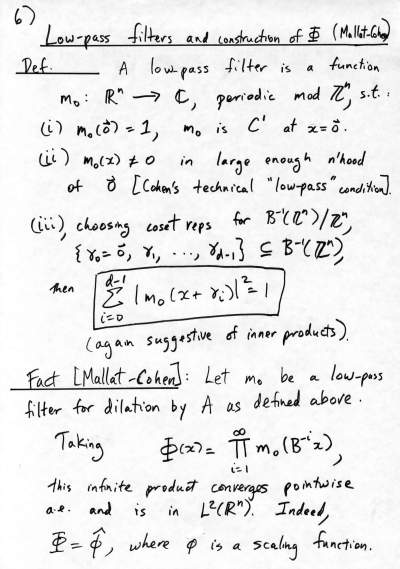 6)
Low-pass filters and construction of Φ (Mallat-Cohen)
Def. A low pass filter is a function
m₀: ℝⁿ → ℂ, periodic mod ℤⁿ, s.t.:
(i) m₀(0⃗) = 1, m₀ is C' at x = 0⃗.
(ii) m₀(x) ≠ 0 in large enough n'hood
of 0⃗ [Cohen's technical "low-pass" condition].
(iii), choosing coset reps for B⁻¹(ℤⁿ)/ℤⁿ,
{γ₀ = 0⃗, γ₁, ..., γ_{d-1}} ⊆ B⁻¹(ℤⁿ),
then ∑_{i=0}^{d-1} |m₀(x + γᵢ)|² = 1
(again suggestive of inner products).
Fact [Mallat-Cohen]: Let m₀ be a low-pass
filter for dilation by A as defined above.
Taking Φ(x) = ∏_{i=1}^{∞} m₀(B⁻ⁱx),
this infinite product converges pointwise
a.e. and is in L²(ℝⁿ). Indeed,
Φ = φ̂, where φ is a scaling function.